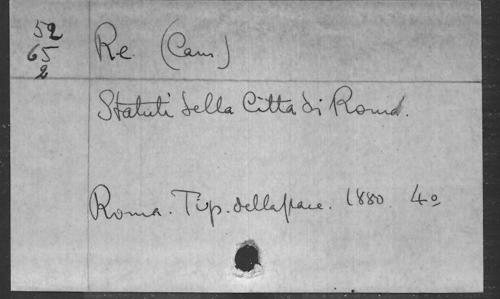 52
65
2
Re (Cam.)
Statuti della Città di Roma.
Roma. Tip. della pace. 1880. 4o